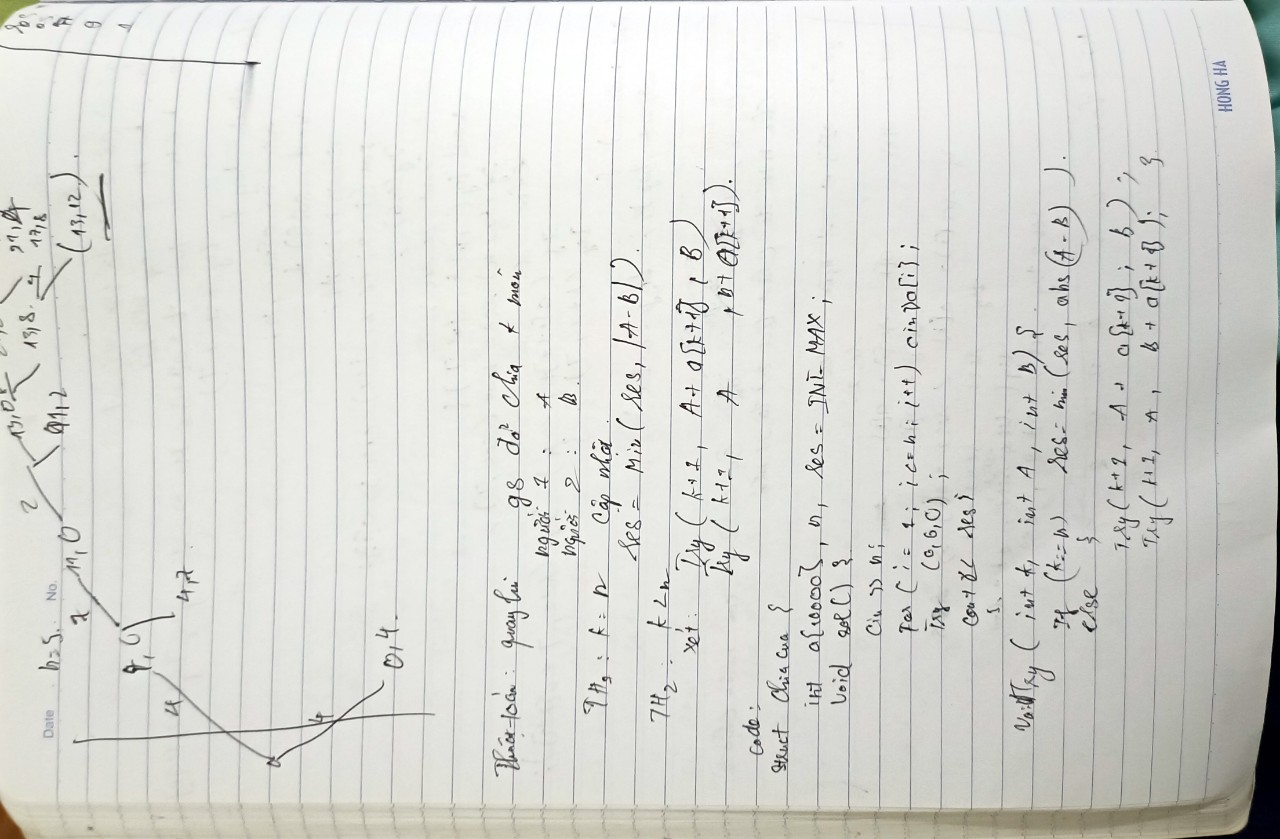 Date n=5. No.
2 13,0 21,4
13,8. 4 17,8
7 11,0 11,2 (13,12).
4, 0
4 4,7.
0
4
0,4.
Thuật toán: quay lui gs đã chia k món
người 1 : A
người 2 : B.
TH1 : k = n Cập nhật.
res = Min( res, |A-B|).
TH2 : k < n
xét: Try ( k+1, A+ a[k+1] , B)
Try ( k+1, A , B+ a[k+1]).
code:
Struct Chiacua {
int a[10000], n, res = INT_MAX;
Void sol() {
Cin >> n;
For ( i = 1; i<=n; i++) cin>>a[i];
Try (0,0,0) ;
cout << res;
}.
Void Try ( int k, int A, int B) {
If (k==n) res= min (res, abs(A-B) ).
else {
Try(k+1, A + a[k+1] ; B ) ;
Try( k+1, A, B + a[k+1] ); }
HONG HA